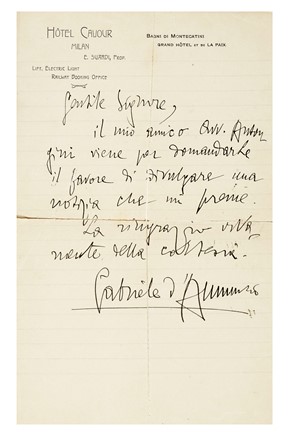 HÔTEL CAVOUR
MILAN
E. SUARDI, PROP.
LIFT, ELECTRIC LIGHT
RAILWAY BOOKING OFFICE
BAGNI DI MONTECATINI
GRAND HÔTEL ET DE LA PAIX
Gentile Signore,
il mio amico Avv. Anton
gini viene per domandarle
il favore di divulgare una
notizia che mi preme.
La ringrazio viva
mente della cortesia.
Gabriele d'Annunzio